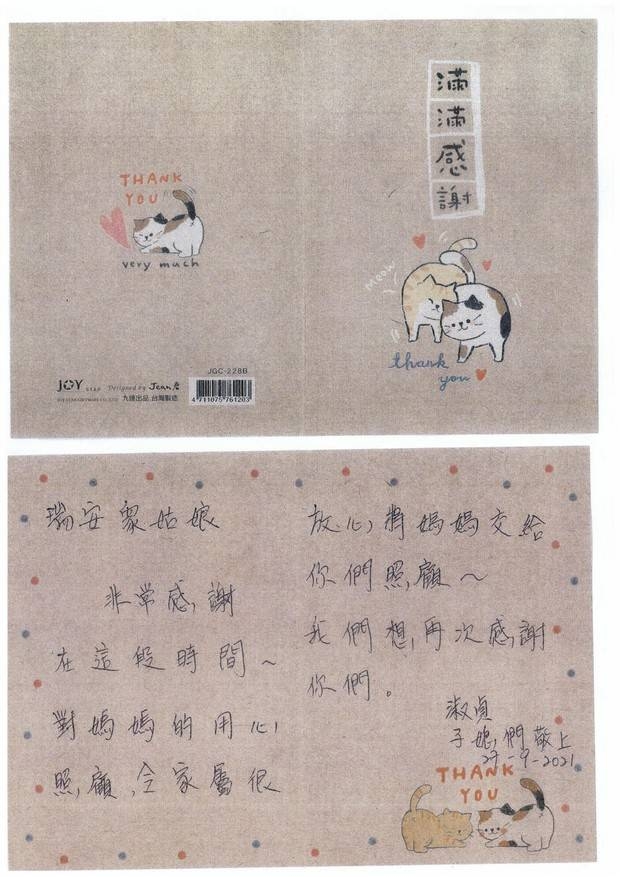 THANK
YOU
very much
JGC-228B
JOY
Designed by Jean
九達出品.台灣製造
4 711075 761203
滿
滿
感
謝
meow
thank
you
瑞安眾姑娘
非常感謝
在這段時間～
對媽媽的用心
照顧,令家屬很
放心,將媽媽交給
你們照顧～
我們想再次感謝
你們。
淑貞
敬上
27-9-2021
THANK
YOU